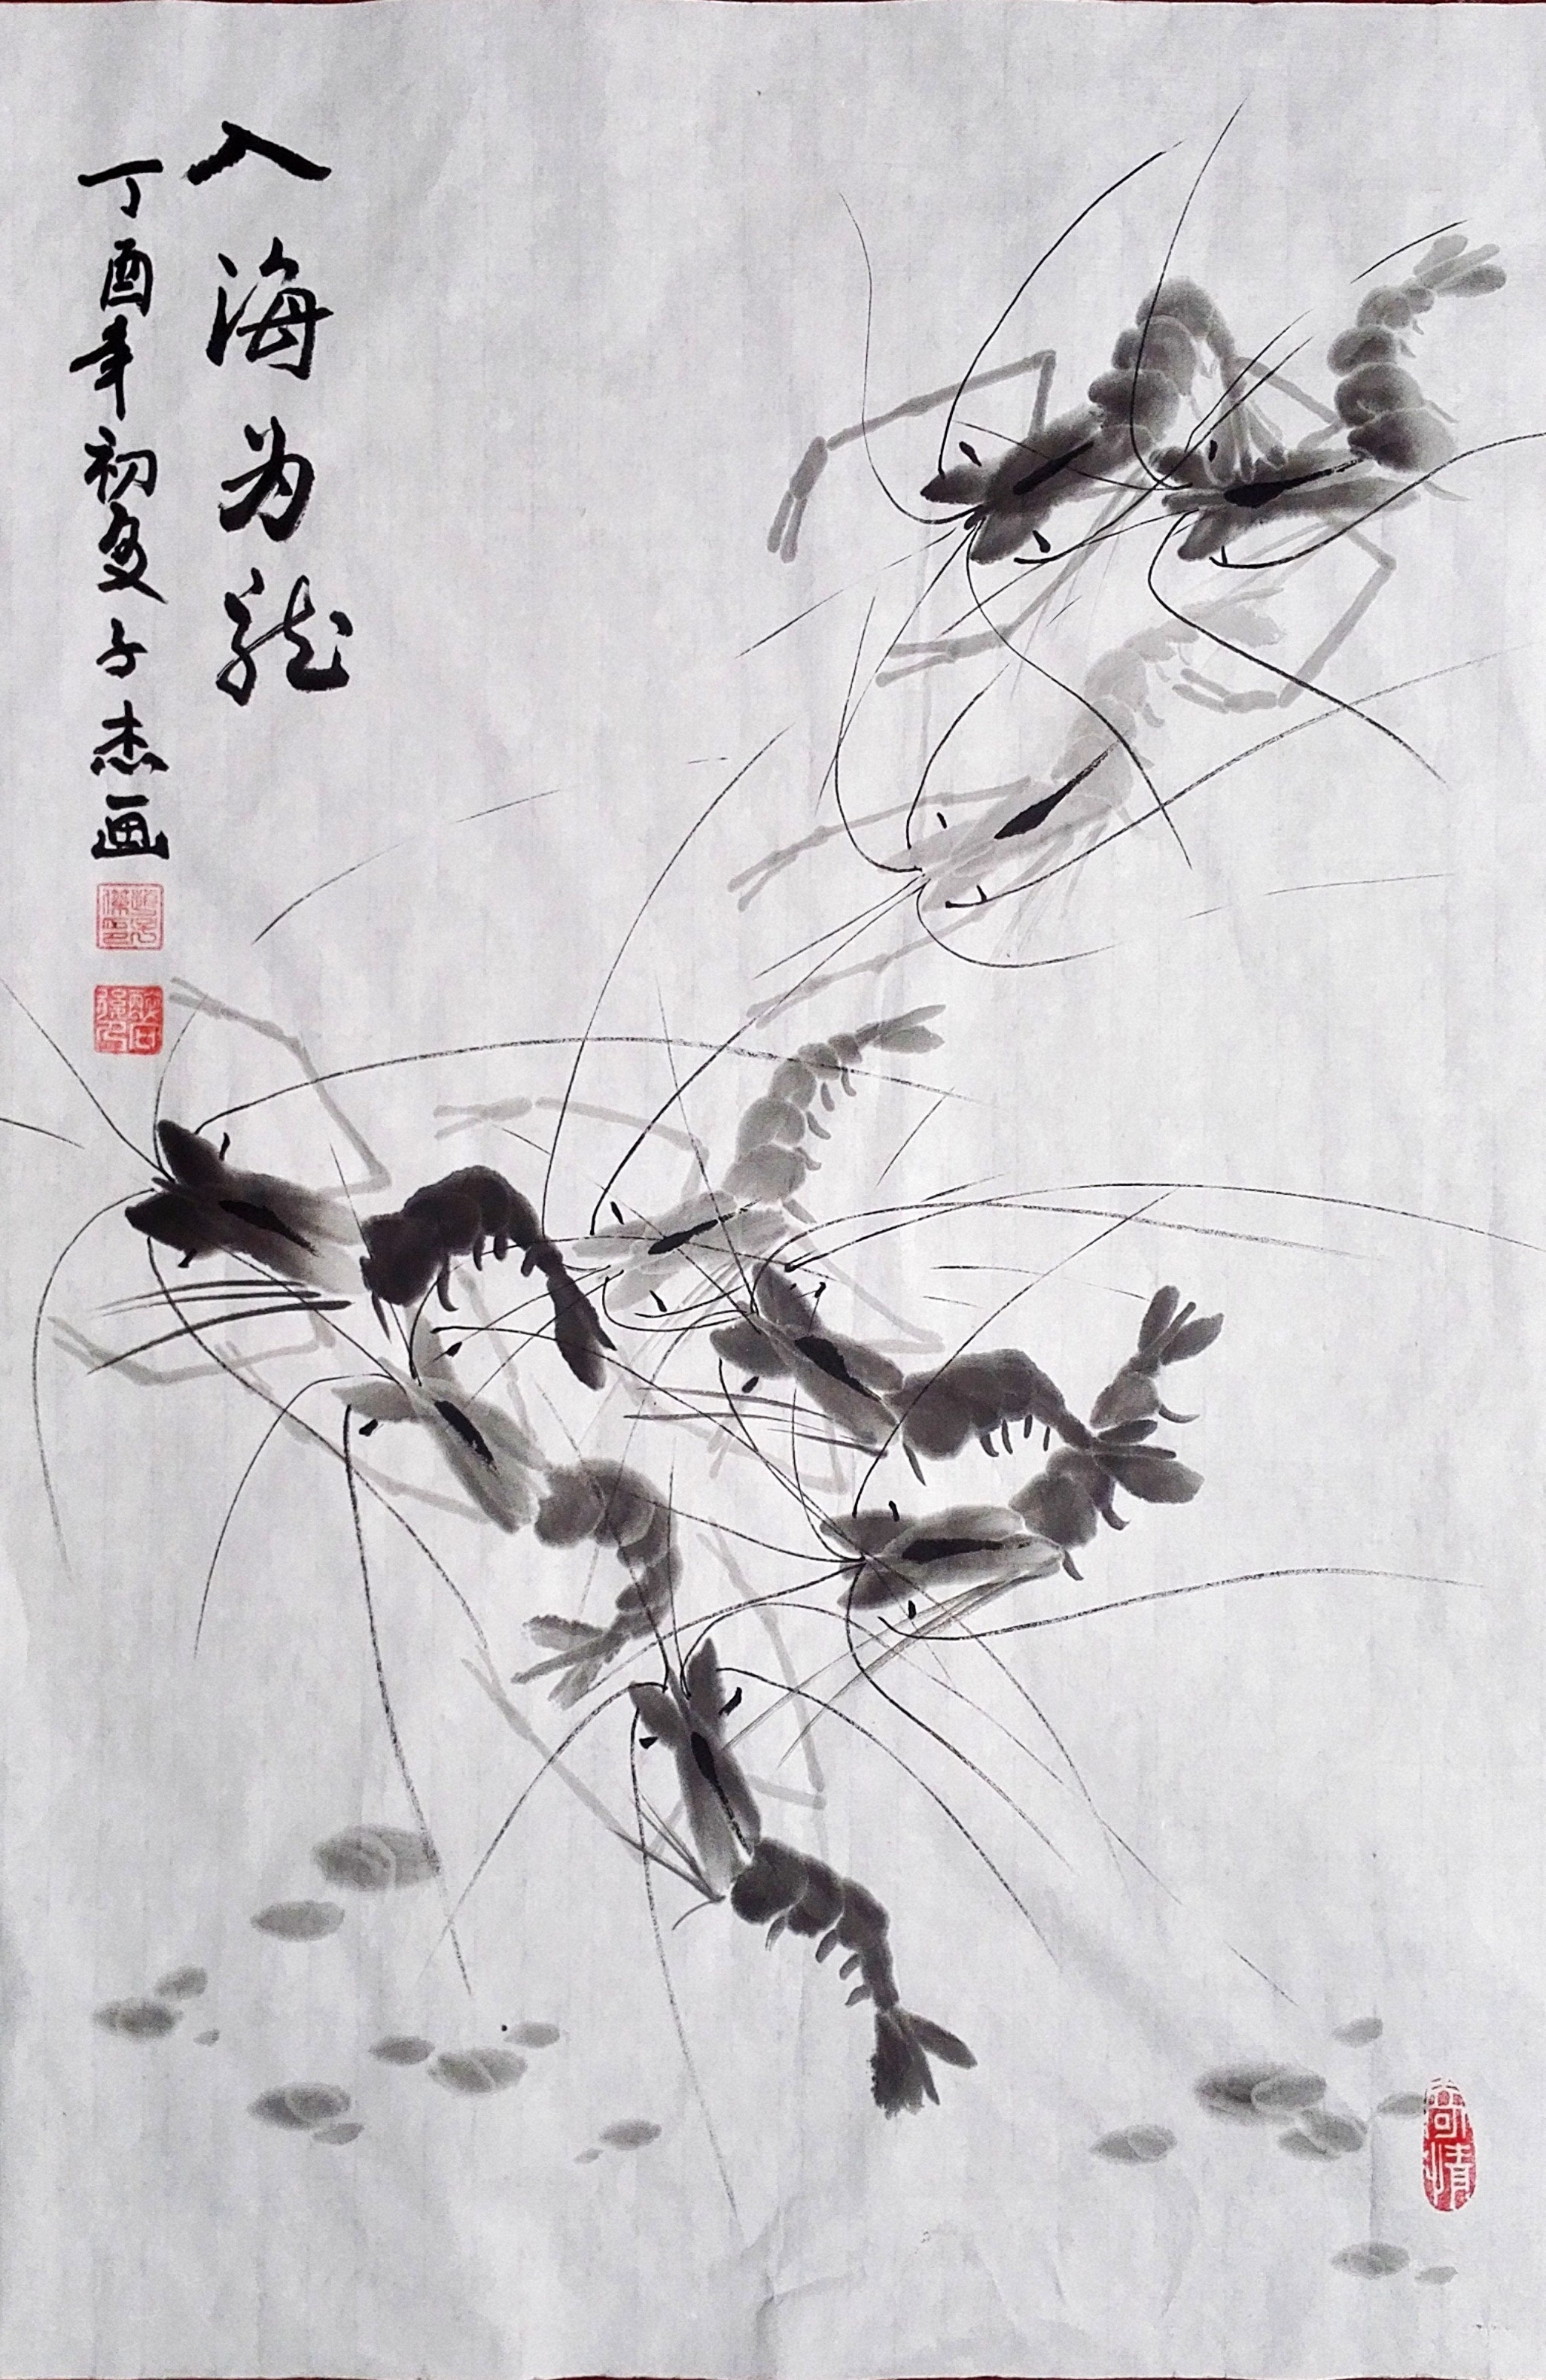 入海为龙
丁酉年初夏子杰画
奇情